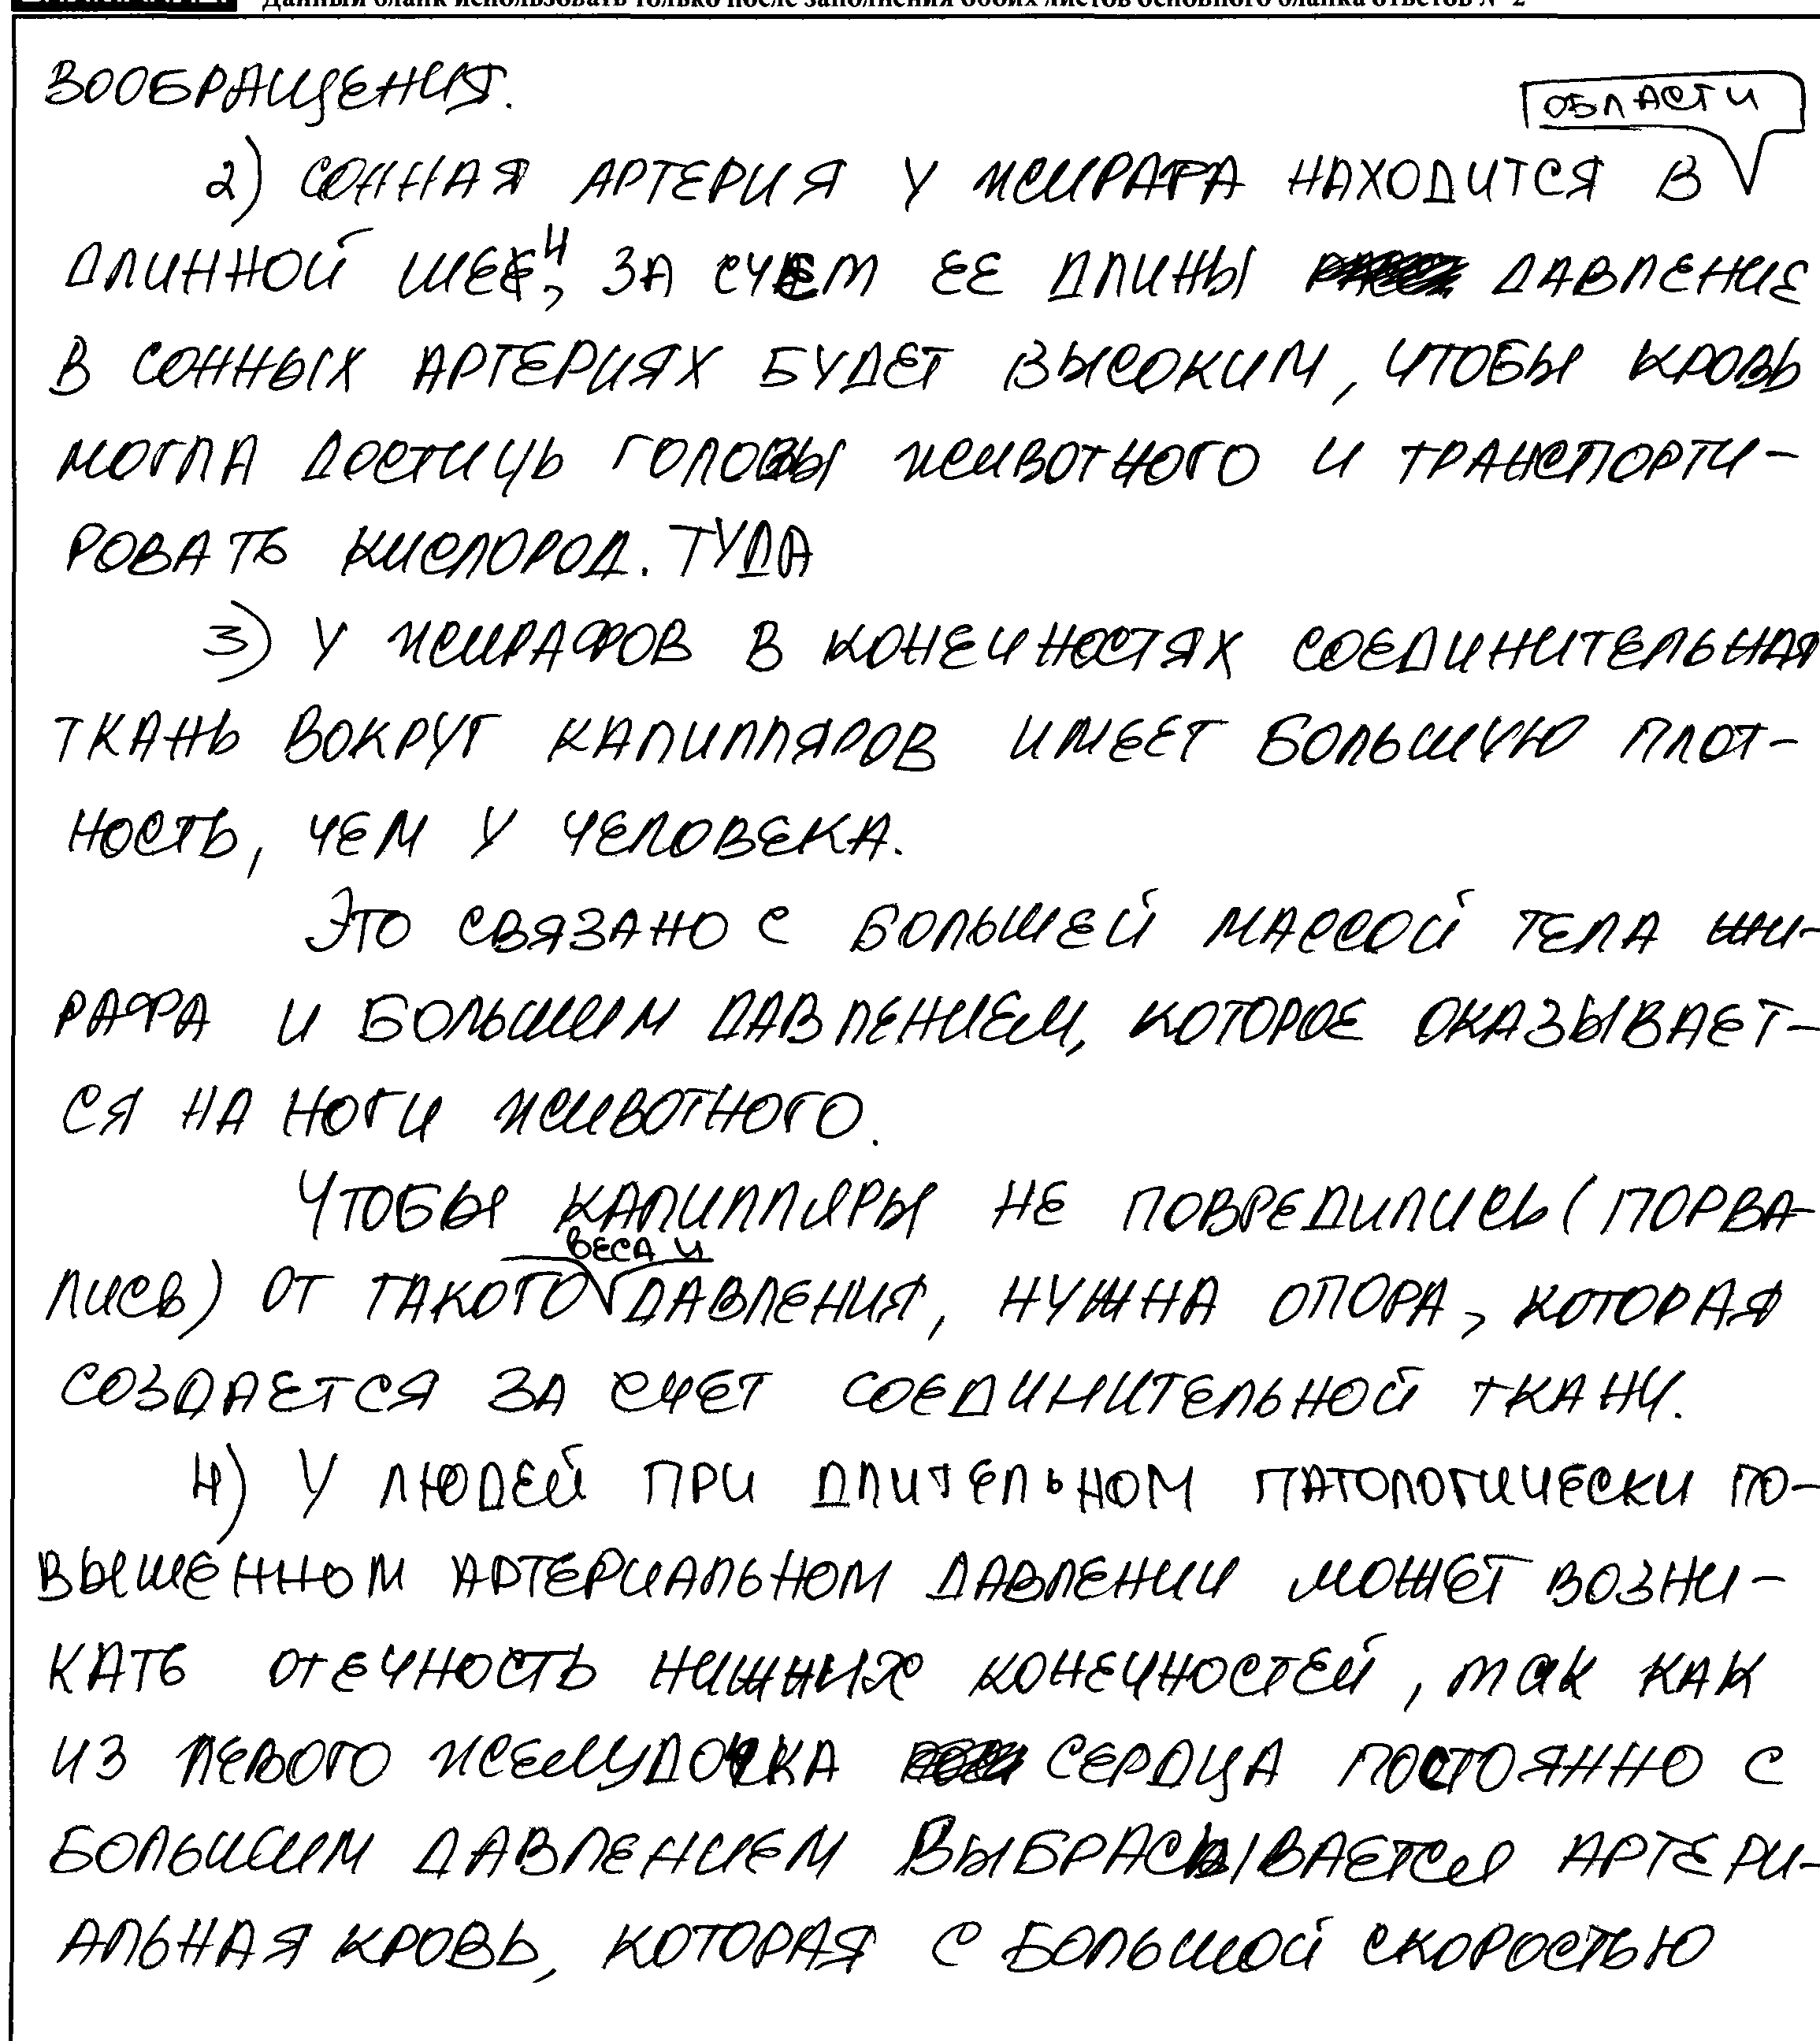 Данный бланк использовать только после заполнения обоих листов основного бланка ответов № 2
ВООБРАЩЕНИЯ.
ОБЛАСТИ
2) СОННАЯ АРТЕРИЯ У ЖИРАФА НАХОДИТСЯ В
ДЛИННОЙ ШЕИ, ЗА СЧЕМ ЕЕ ДЛИНЫ ДАВЛЕНИЕ
В СОННЫХ АРТЕРИЯХ БУДЕТ ВЫСОКИМ, ЧТОБЫ КРОВЬ
МОГЛА ДОСТИЦЬ ГОЛОВЫ ЖИВОТНОГО И ТРАНСПОРТИ-
РОВАТЬ КИСЛОРОД. ТУДА
3) У ЖИРАФОВ В КОНЕЧНОСТЯХ СОЕДИНИТЕЛЬНАЯ
ТКАНЬ ВОКРУГ КАПИЛЛЯРОВ ИМЕЕТ БОЛЬШУЮ ПЛОТ-
НОСТЬ, ЧЕМ У ЧЕЛОВЕКА.
ЭТО СВЯЗАНО С БОЛЬШЕЙ МАССОЙ ТЕЛА ЖИ-
РАФА И БОЛЬШИМ ДАВЛЕНИЕМ, КОТОРОЕ ОКАЗЫВАЕТ-
СЯ НА НОГИ ЖИВОТНОГО.
ЧТОБЫ КАПИЛЛЯРЫ НЕ ПОВРЕДИЛИСЬ (ПОРВА-
ВЕСА И
ЛИСЬ) ОТ ТАКОГО ДАВЛЕНИЯ, НУЖНА ОПОРА, КОТОРАЯ
СОЗДАЕТСЯ ЗА СЧЕТ СОЕДИНИТЕЛЬНОЙ ТКАНИ.
4) У ЛЮДЕЙ ПРИ ДЛИТЕЛЬНОМ ПАТОЛОГИЧЕСКИ ПО-
ВЫШЕННОМ АРТЕРИАЛЬНОМ ДАВЛЕНИИ МОЖЕТ ВОЗНИ-
КАТЬ ОТЕЧНОСТЬ НИЖНИХ КОНЕЧНОСТЕЙ, так КАК
ИЗ ЛЕВОГО ЖЕЛУДОЧКА СЕРДЦА ПОСТОЯННО С
БОЛЬШИМ ДАВЛЕНИЕМ ВЫБРАСЫВАЕТСЯ АРТЕРИ-
АЛЬНАЯ КРОВЬ, КОТОРАЯ С БОЛЬШОЙ СКОРОСТЬЮ